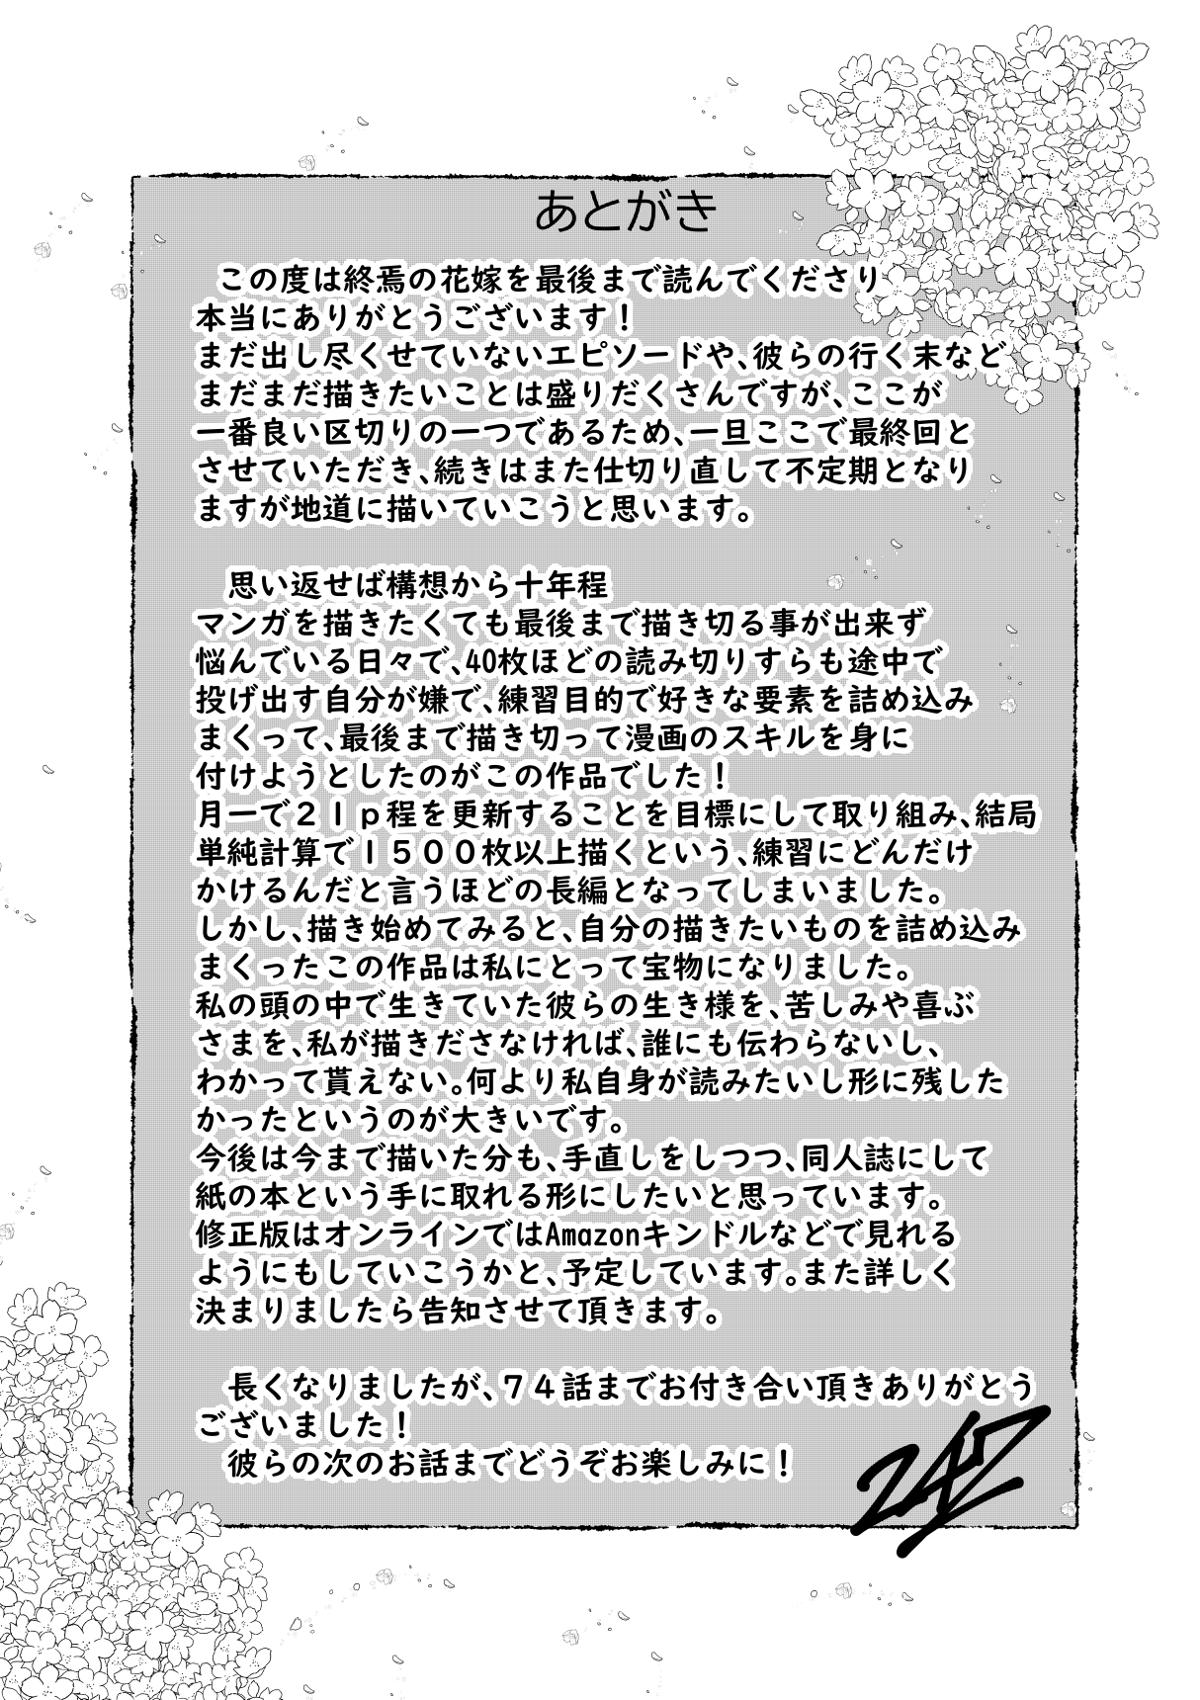 あとがき
この度は終焉の花嫁を最後まで読んでくださり
本当にありがとうございます！
まだ出し尽くせていないエピソードや、彼らの行く末など
まだまだ描きたいことは盛りだくさんですが、ここが
一番良い区切りの一つであるため、一旦ここで最終回と
させていただき、続きはまた仕切り直して不定期となり
ますが地道に描いていこうと思います。
思い返せば構想から十年程
マンガを描きたくても最後まで描き切る事が出来ず
悩んでいる日々で、40枚ほどの読み切りすらも途中で
投げ出す自分が嫌で、練習目的で好きな要素を詰め込み
まくって、最後まで描き切って漫画のスキルを身に
付けようとしたのがこの作品でした！
月一で２１ｐ程を更新することを目標にして取り組み、結局
単純計算で１５００枚以上描くという、練習にどんだけ
かけるんだと言うほどの長編となってしまいました。
しかし、描き始めてみると、自分の描きたいものを詰め込み
まくったこの作品は私にとって宝物になりました。
私の頭の中で生きていた彼らの生き様を、苦しみや喜ぶ
さまを、私が描きださなければ、誰にも伝わらないし、
わかって貰えない。何より私自身が読みたいし形に残した
かったというのが大きいです。
今後は今まで描いた分も、手直しをしつつ、同人誌にして
紙の本という手に取れる形にしたいと思っています。
修正版はオンラインではAmazonキンドルなどで見れる
ようにもしていこうかと、予定しています。また詳しく
決まりましたら告知させて頂きます。
長くなりましたが、７４話までお付き合い頂きありがとう
ございました！
彼らの次のお話までどうぞお楽しみに！